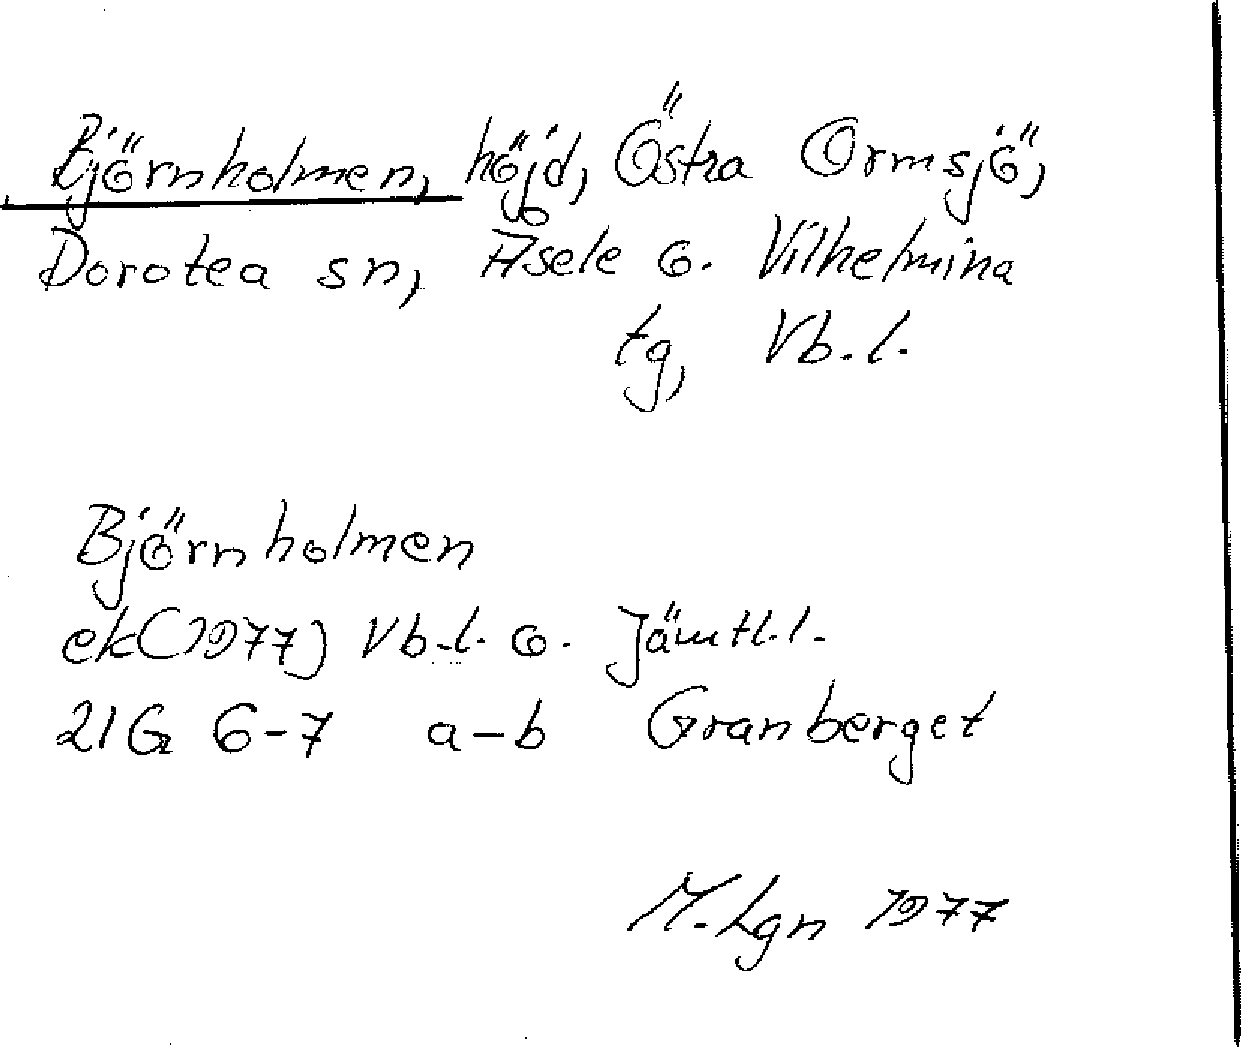 Björnholmen, höjd, Östra Ormsjö,
Dorotea sn, Åsele o. Vilhelmina
tg, Vb.l.
Björnholmen
ek(1977) Vb.l. o. Jämtl.l.
21G 6-7 a-b Granberget
M.Lgn 1977